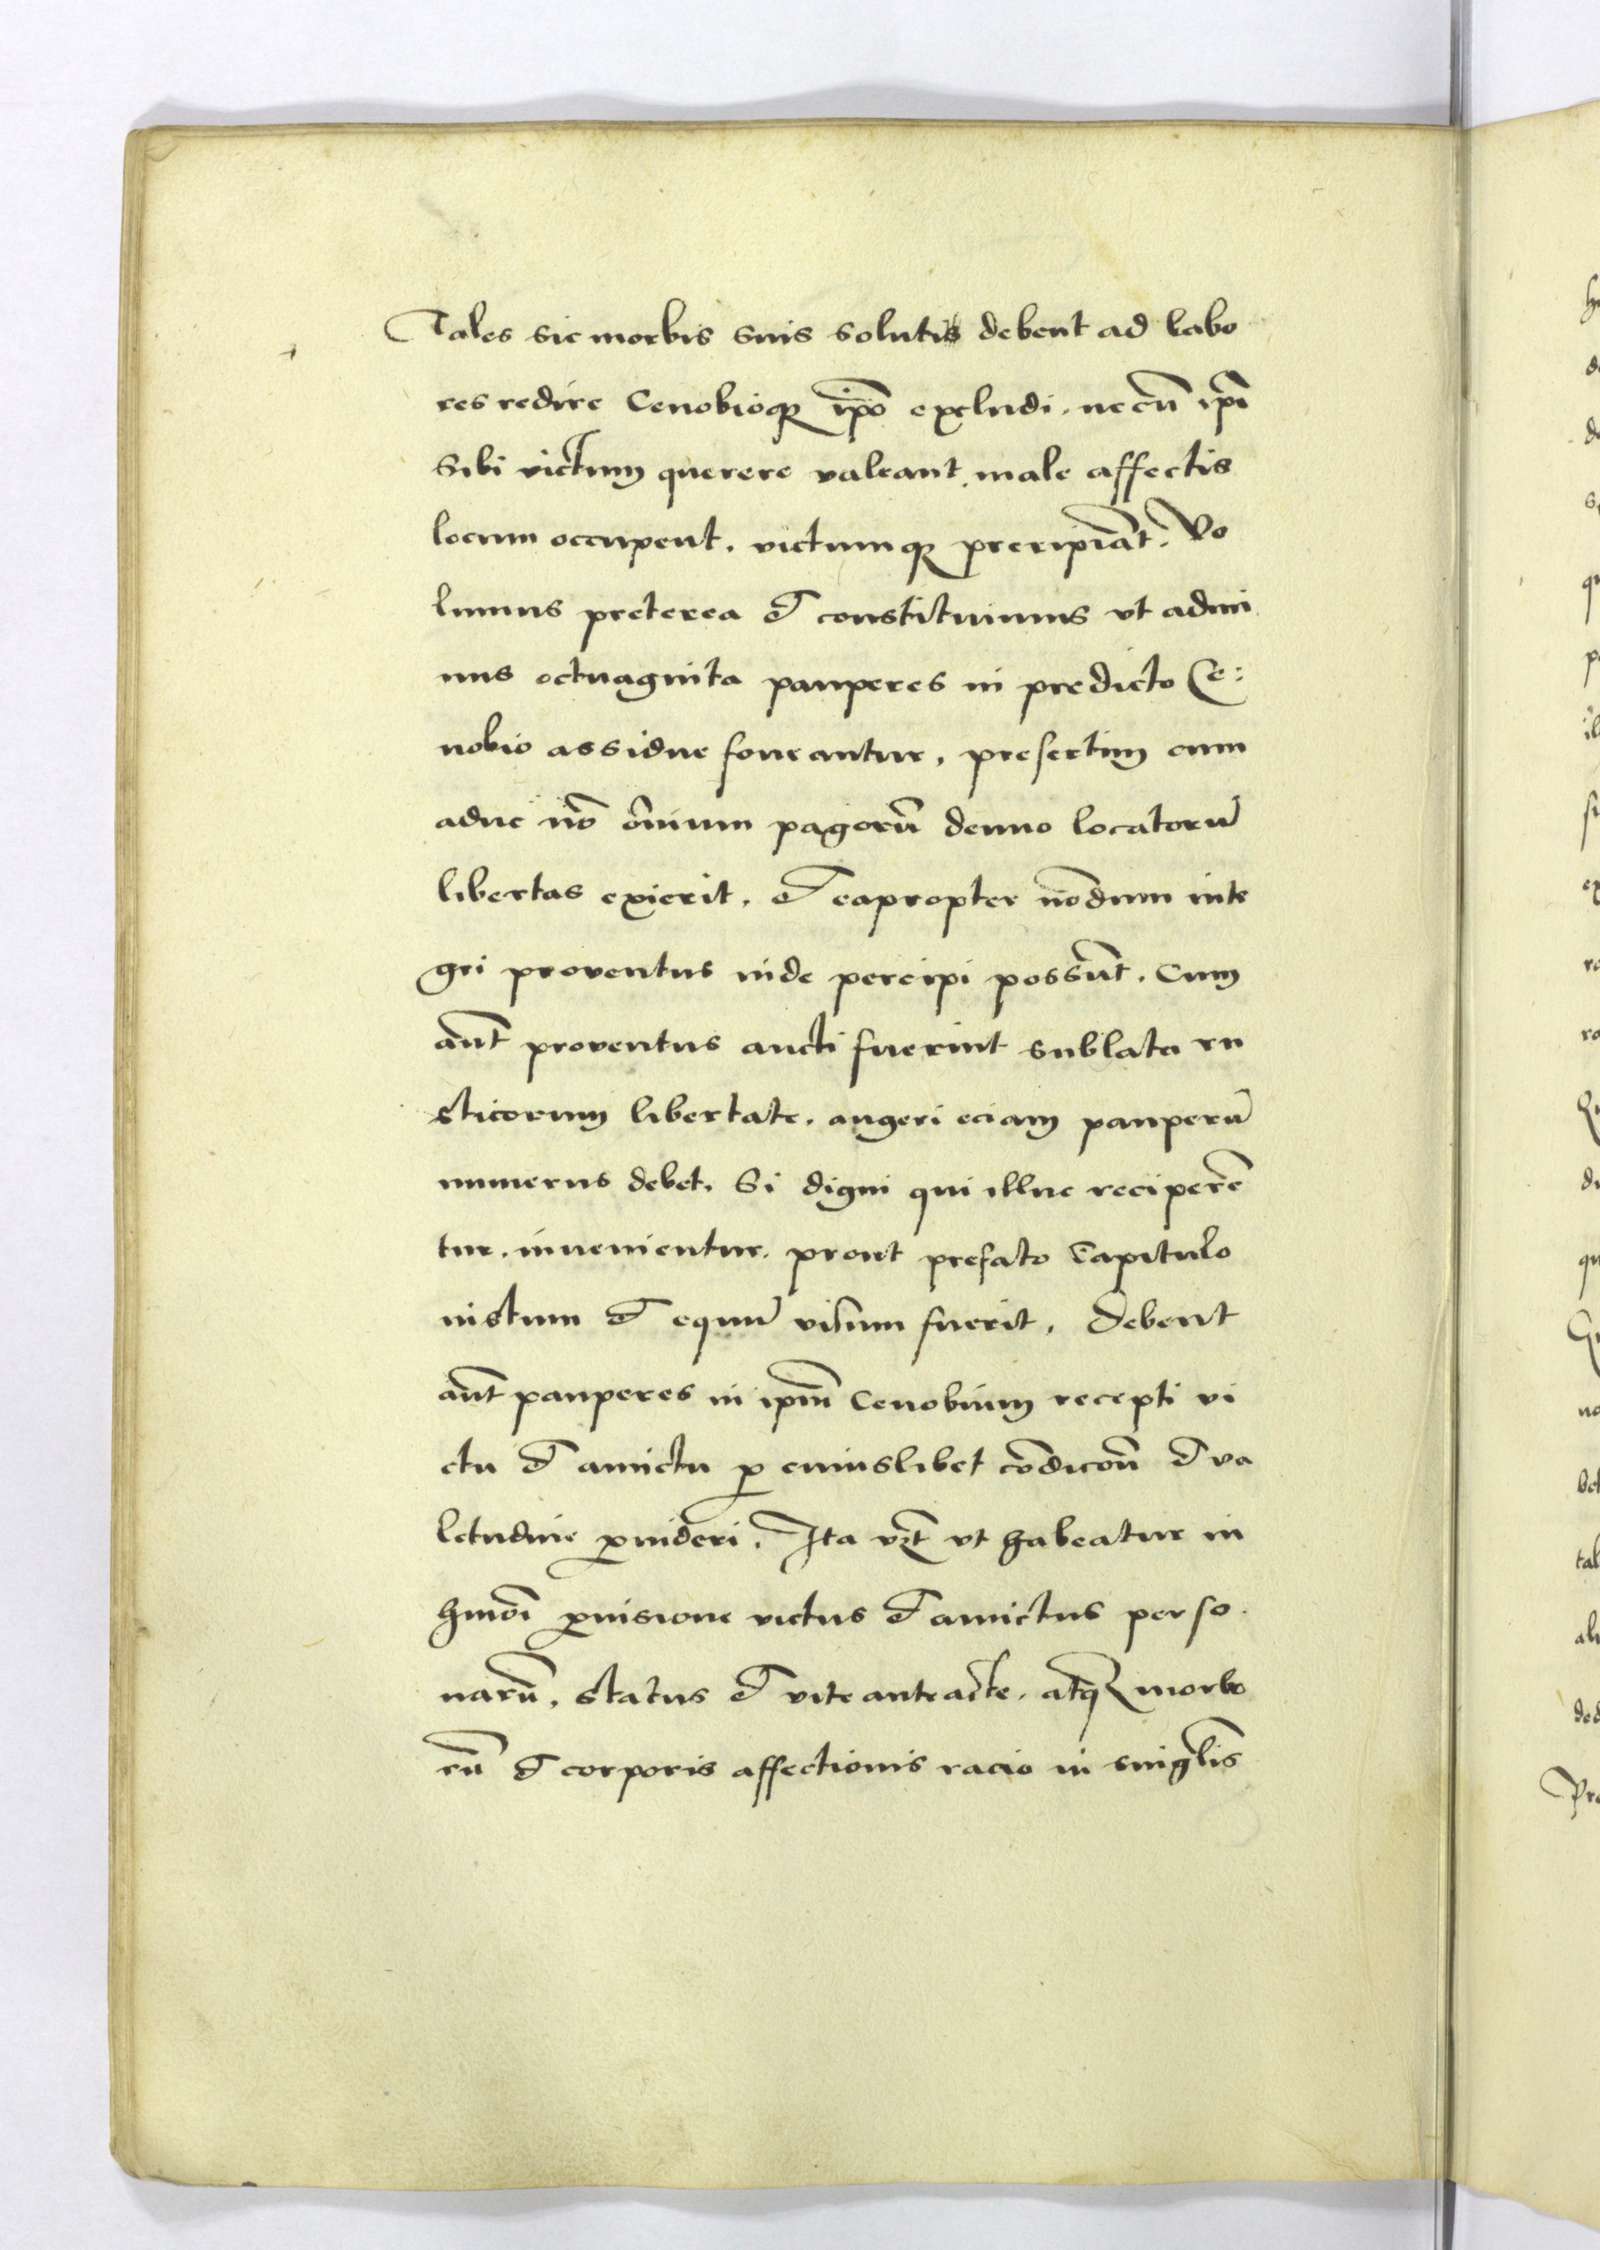 Tales sic morbis suis solutis debent ad labo
res redire Cenobioq₃ ip̄o excludi. ne cū ip̄i
sibi victum querere valeant, male affectis
locum occupent. victumq₃ preripiāt. Vo
lumus preterea et constituimus vt admi
nus octuaginta pauperes in predicto Ce:
nobio assidue foueantur, presertim cum
aduc nō oīnium pagorū denuo locatorū
libertas exierit. et eapropter nōdum inte
gri proventus inde percipi possūnt. Cum
aūt proventus aucti fuerint sublata ru
sticorum libertate. augeri eciam pauperū
numerus debet. Si digni qui illuc reciperē
tur. inuenientur. prout prefato Capitulo
iustum et equū visum fuerit. Debent
aūt pauperes in ip̄m Cenobium recepti vi
ctu et amictu ꝓ cuiuslibet cōdicōn̄ et va
letudine ꝓuideri. Ita vꝫt vt habeatur in
hmōi ꝓuisione victus et amictus perso
narū, status et vite anteacte. atq₃ morbo
rū et corporis affectionis racio in singl̄is